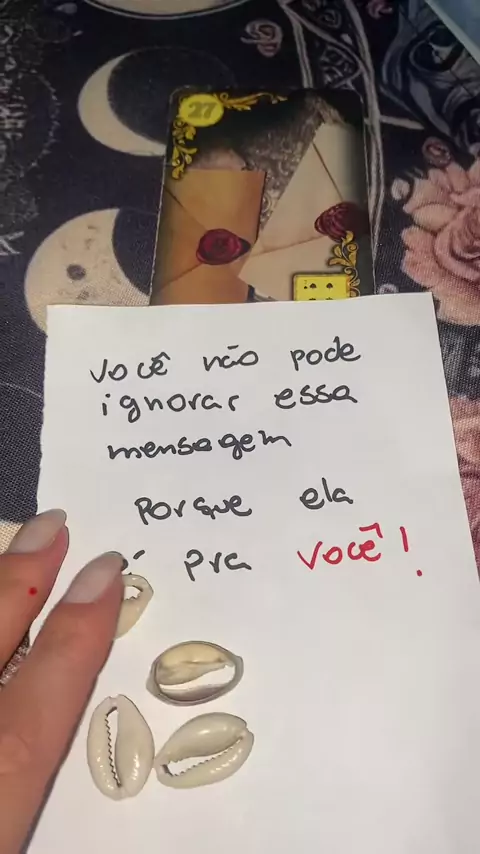 27
você não pode
ignorar essa
mensagem
Porque ela
é pra você!